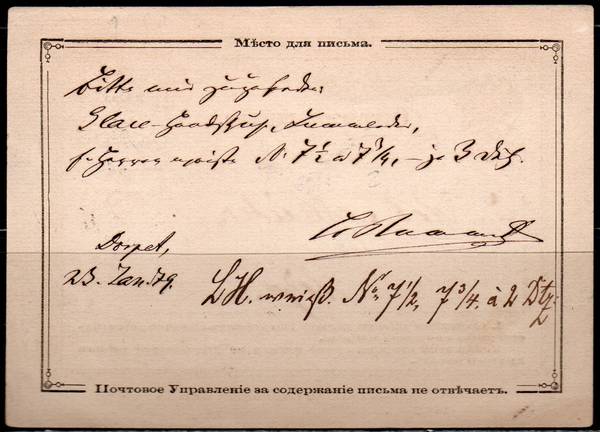 Мѣсто для письма.
Bitte mir zuzusenden:
Glacé-Handschuh,
f. Herren weiße № 7½ 7¾, – je 3 Dtz.
Dorpat,
23. Jan. 79.
LH. weiß. No 7 1/2, 7 3/4. à 2 Dtz.
Почтовое Управленіе за содержаніе письма не отвѣчаетъ.